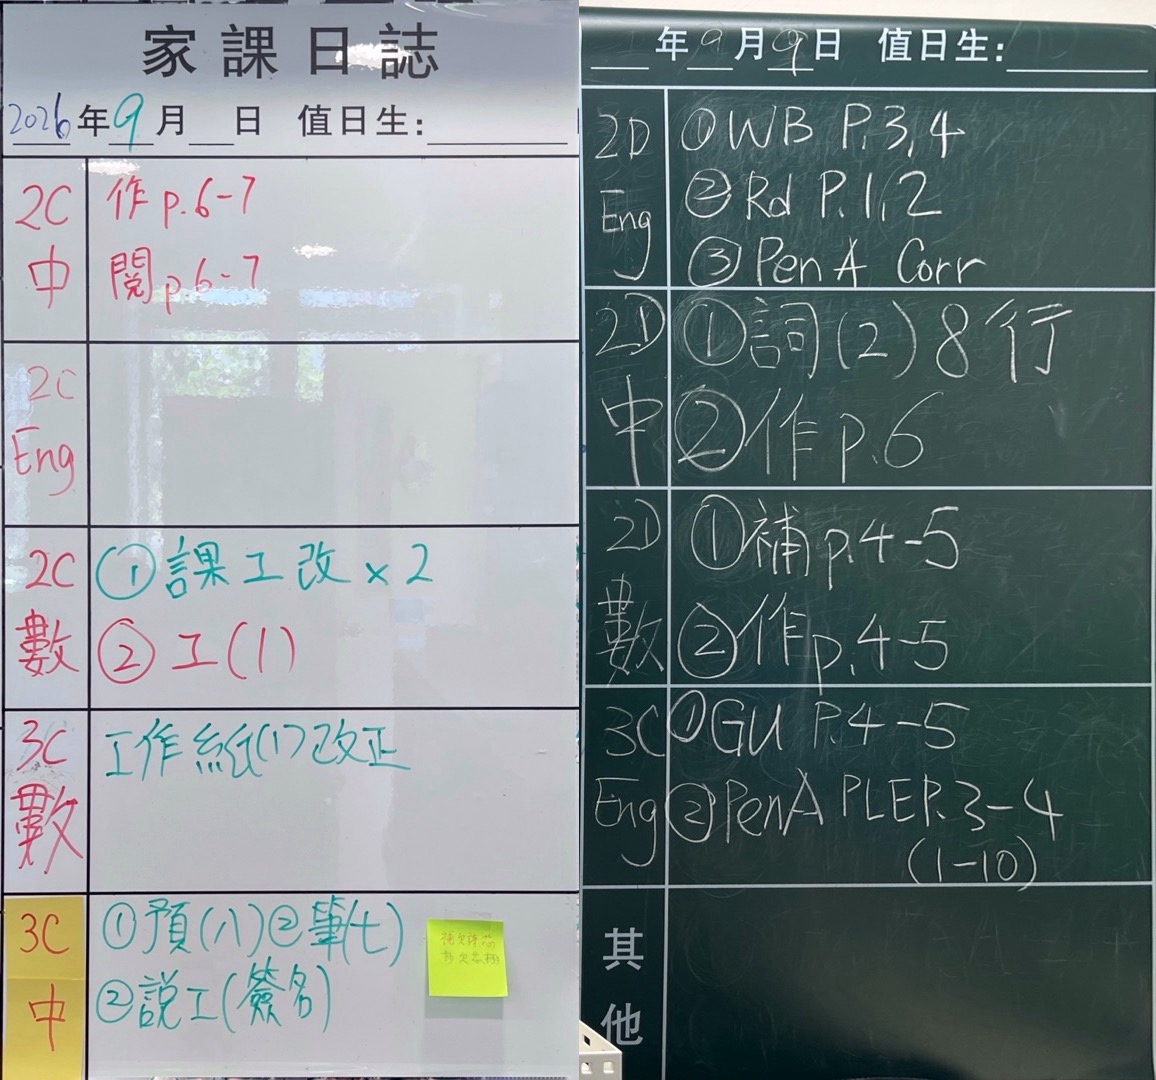 家課日誌
2026年9月__日 值日生:
2C 中
作 p.6-7
閱 p6-7
2C Eng
2C 數
①課工改×2
②工(1)
3C 數
工作紙(1)改正
3C 中
①預(八)②筆(七)
②說工(簽名)
年9月9日 值日生:
2D Eng
①WB P.3,4
②Rd P.1,2
③Pen A Corr
2D 中
①詞(2)8行
②作p.6
2D 數
①補p.4-5
②作p.4-5
3C Eng
①GU P.4-5
②PenA PLEP.3-4
(1-10)
其他